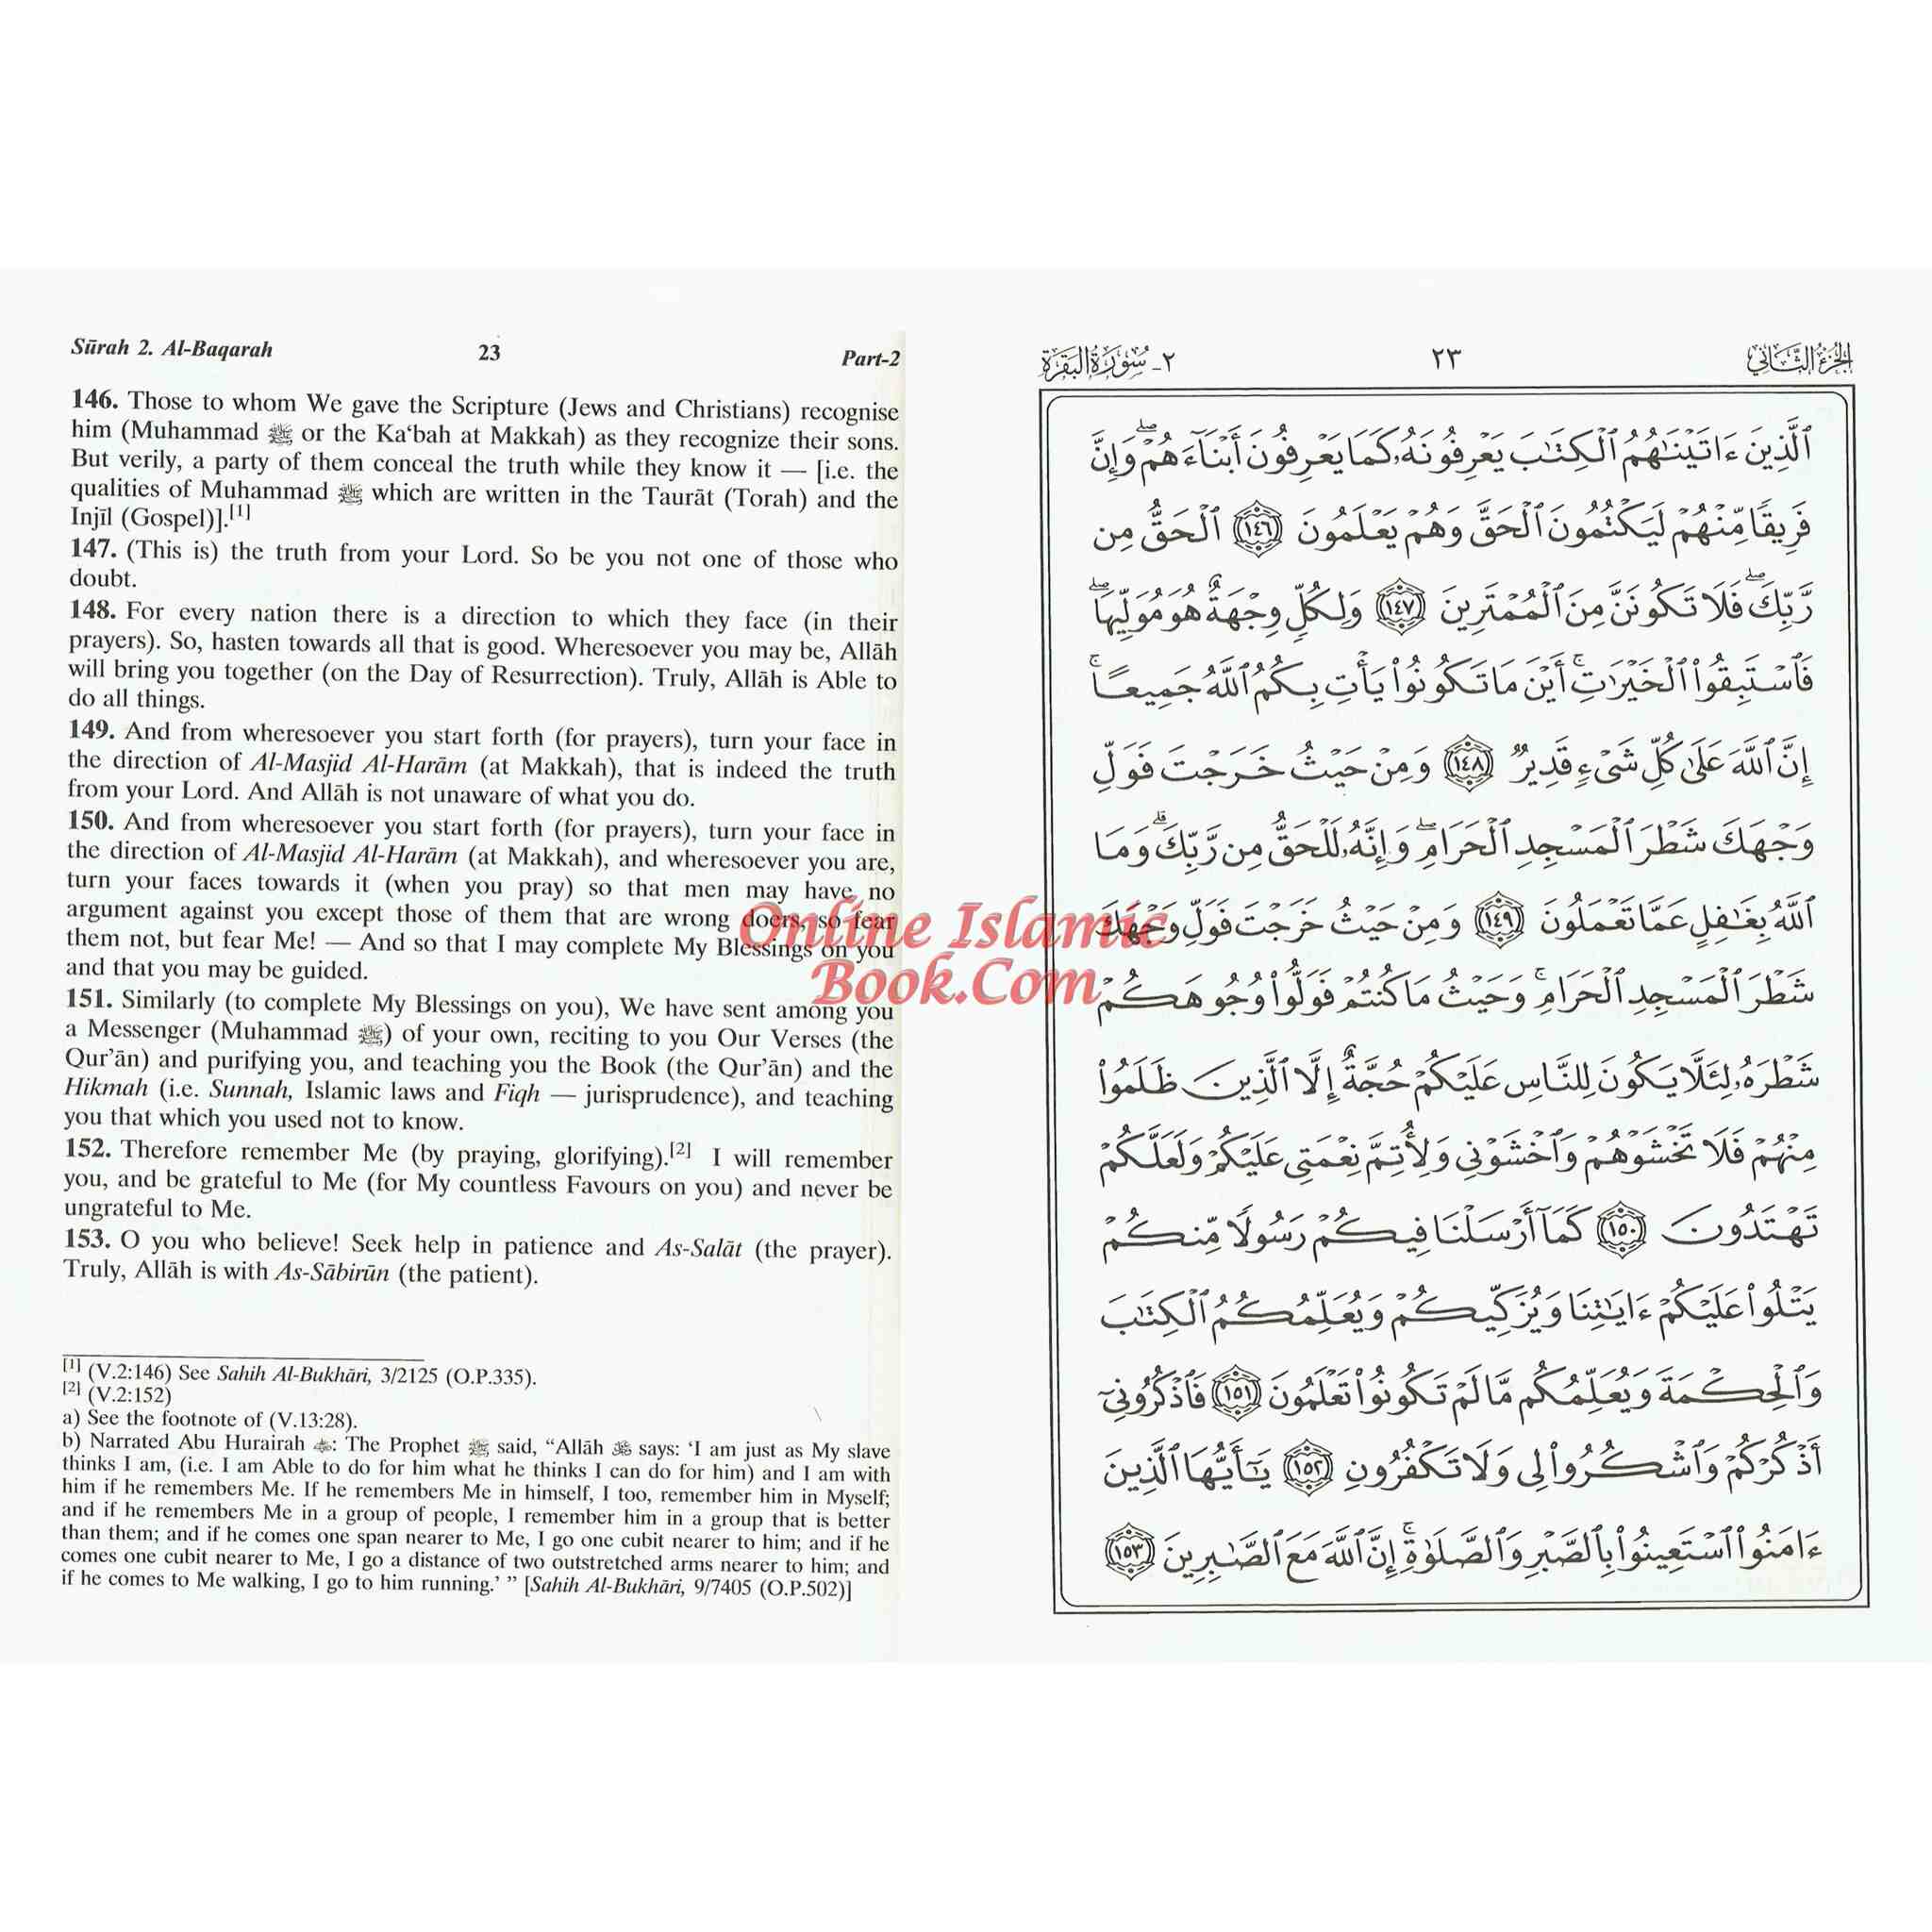 Sūrah 2. Al-Baqarah 23 Part-2
146. Those to whom We gave the Scripture (Jews and Christians) recognise
him (Muhammad ﷺ or the Ka‘bah at Makkah) as they recognize their sons.
But verily, a party of them conceal the truth while they know it — [i.e. the
qualities of Muhammad ﷺ which are written in the Taurāt (Torah) and the
Injīl (Gospel)].[1]
147. (This is) the truth from your Lord. So be you not one of those who
doubt.
148. For every nation there is a direction to which they face (in their
prayers). So, hasten towards all that is good. Wheresoever you may be, Allāh
will bring you together (on the Day of Resurrection). Truly, Allāh is Able to
do all things.
149. And from wheresoever you start forth (for prayers), turn your face in
the direction of Al-Masjid Al-Harām (at Makkah), that is indeed the truth
from your Lord. And Allāh is not unaware of what you do.
150. And from wheresoever you start forth (for prayers), turn your face in
the direction of Al-Masjid Al-Harām (at Makkah), and wheresoever you are,
turn your faces towards it (when you pray) so that men may have no
argument against you except those of them that are wrong doers, so fear
them not, but fear Me! — And so that I may complete My Blessings on you
and that you may be guided.
151. Similarly (to complete My Blessings on you), We have sent among you
a Messenger (Muhammad ﷺ) of your own, reciting to you Our Verses (the
Qur’ān) and purifying you, and teaching you the Book (the Qur’ān) and the
Hikmah (i.e. Sunnah, Islamic laws and Fiqh — jurisprudence), and teaching
you that which you used not to know.
152. Therefore remember Me (by praying, glorifying).[2] I will remember
you, and be grateful to Me (for My countless Favours on you) and never be
ungrateful to Me.
153. O you who believe! Seek help in patience and As-Salāt (the prayer).
Truly, Allāh is with As-Sābirūn (the patient).
[1] (V.2:146) See Sahih Al-Bukhāri, 3/2125 (O.P.335).
[2] (V.2:152)
a) See the footnote of (V.13:28).
b) Narrated Abu Hurairah : The Prophet ﷺ said, “Allāh says: ‘I am just as My slave
thinks I am, (i.e. I am Able to do for him what he thinks I can do for him) and I am with
him if he remembers Me. If he remembers Me in himself, I too, remember him in Myself;
and if he remembers Me in a group of people, I remember him in a group that is better
than them; and if he comes one span nearer to Me, I go one cubit nearer to him; and if he
comes one cubit nearer to Me, I go a distance of two outstretched arms nearer to him; and
if he comes to Me walking, I go to him running.’ ” [Sahih Al-Bukhāri, 9/7405 (O.P.502)]
الجزء الثاني ٢٣ ٢- سورة البقرة
ٱلَّذِينَ ءَاتَيْنَٰهُمُ ٱلْكِتَٰبَ يَعْرِفُونَهُۥ كَمَا يَعْرِفُونَ أَبْنَآءَهُمْ ۖ وَإِنَّ
فَرِيقًا مِّنْهُمْ لَيَكْتُمُونَ ٱلْحَقَّ وَهُمْ يَعْلَمُونَ ١٤٦ ٱلْحَقُّ مِن
رَّبِّكَ ۖ فَلَا تَكُونَنَّ مِنَ ٱلْمُمْتَرِينَ ١٤٧ وَلِكُلٍّ وِجْهَةٌ هُوَ مُوَلِّيهَا ۖ
فَٱسْتَبِقُوا۟ ٱلْخَيْرَٰتِ ۚ أَيْنَ مَا تَكُونُوا۟ يَأْتِ بِكُمُ ٱللَّهُ جَمِيعًا ۚ
إِنَّ ٱللَّهَ عَلَىٰ كُلِّ شَىْءٍ قَدِيرٌ ١٤٨ وَمِنْ حَيْثُ خَرَجْتَ فَوَلِّ
وَجْهَكَ شَطْرَ ٱلْمَسْجِدِ ٱلْحَرَامِ ۖ وَإِنَّهُۥ لَلْحَقُّ مِن رَّبِّكَ ۗ وَمَا
ٱللَّهُ بِغَٰفِلٍ عَمَّا تَعْمَلُونَ ١٤٩ وَمِنْ حَيْثُ خَرَجْتَ فَوَلِّ وَجْهَكَ
شَطْرَ ٱلْمَسْجِدِ ٱلْحَرَامِ ۚ وَحَيْثُ مَا كُنتُمْ فَوَلُّوا۟ وُجُوهَكُمْ
شَطْرَهُۥ لِئَلَّا يَكُونَ لِلنَّاسِ عَلَيْكُمْ حُجَّةٌ إِلَّا ٱلَّذِينَ ظَلَمُوا۟
مِنْهُمْ فَلَا تَخْشَوْهُمْ وَٱخْشَوْنِى وَلِأُتِمَّ نِعْمَتِى عَلَيْكُمْ وَلَعَلَّكُمْ
تَهْتَدُونَ ١٥٠ كَمَآ أَرْسَلْنَا فِيكُمْ رَسُولًا مِّنكُمْ
يَتْلُوا۟ عَلَيْكُمْ ءَايَٰتِنَا وَيُزَكِّيكُمْ وَيُعَلِّمُكُمُ ٱلْكِتَٰبَ
وَٱلْحِكْمَةَ وَيُعَلِّمُكُم مَّا لَمْ تَكُونُوا۟ تَعْلَمُونَ ١٥١ فَٱذْكُرُونِىٓ
أَذْكُرْكُمْ وَٱشْكُرُوا۟ لِى وَلَا تَكْفُرُونِ ١٥٢ يَٰٓأَيُّهَا ٱلَّذِينَ
ءَامَنُوا۟ ٱسْتَعِينُوا۟ بِٱلصَّبْرِ وَٱلصَّلَوٰةِ ۚ إِنَّ ٱللَّهَ مَعَ ٱلصَّٰبِرِينَ ١٥٣
Online Islamic
Book.Com